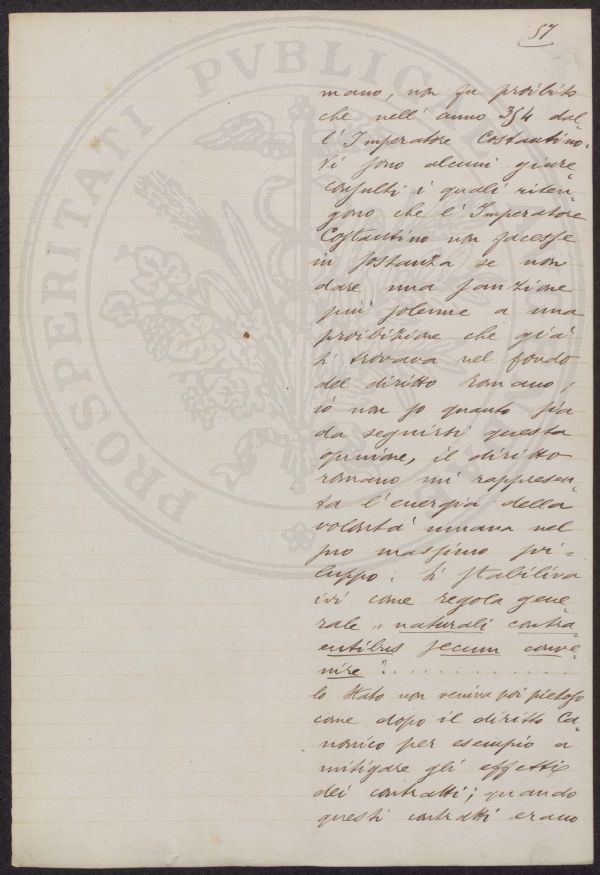 57
mano, non fu proibito
che nell' anno 354 dal
l' Imperatore Costantino.
Vi sono alcuni giure
consulti i quali riten
gono che l' Imperatore
Costantino non facesse
in sostanza se non
dare una sanzione
più solenne a una
proibizione che già
si trovava nel fondo
del diritto romano;
io non so quanto sia
da seguirsi questa
opinione, il diritto
romano mi rappresen
ta l' energia della
volontà umana nel
suo massimo svi=
luppo. Si stabiliva
ivi come regola gene
rale „ naturali contra
entibus secum conve
nire "..............
lo Stato non veniva poi pietoso
come dopo il diritto Ca
nonico per esempio a
mitigare gli effetti
dei contratti; quando
questi contratti erano
PROSPERITATI PVBLICAE